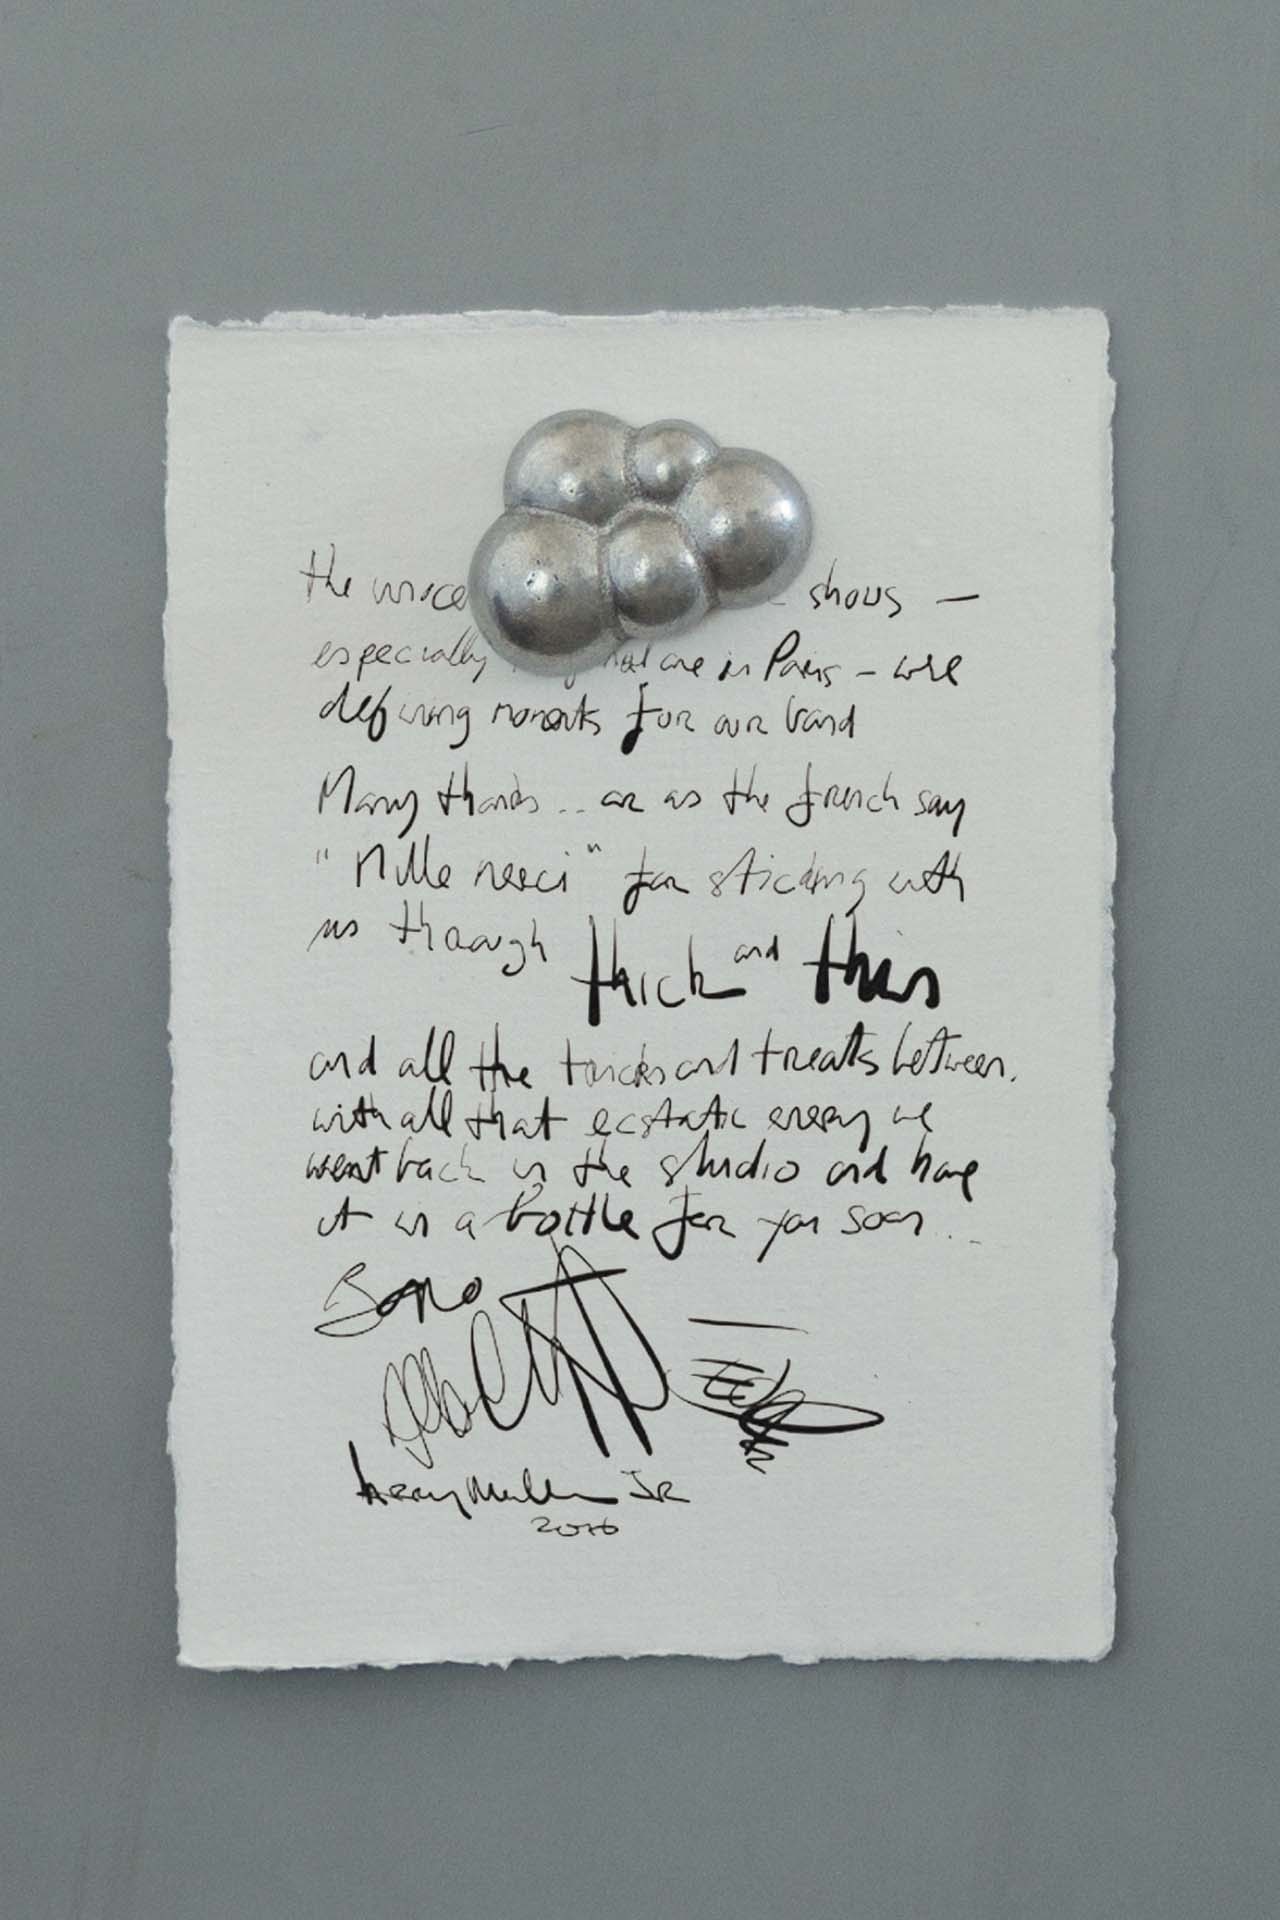 the shows —
especially in Paris – were
defining moments for our band
Many thanks .. or as the french say
"Mille merci" for sticking with
us through thick and thin
and all the tricks and treats between.
with all that ecstatic energy we
went back in the studio and have
it in a bottle for you soon ...
Bono
Edge
Larry Mullen Jr
2016